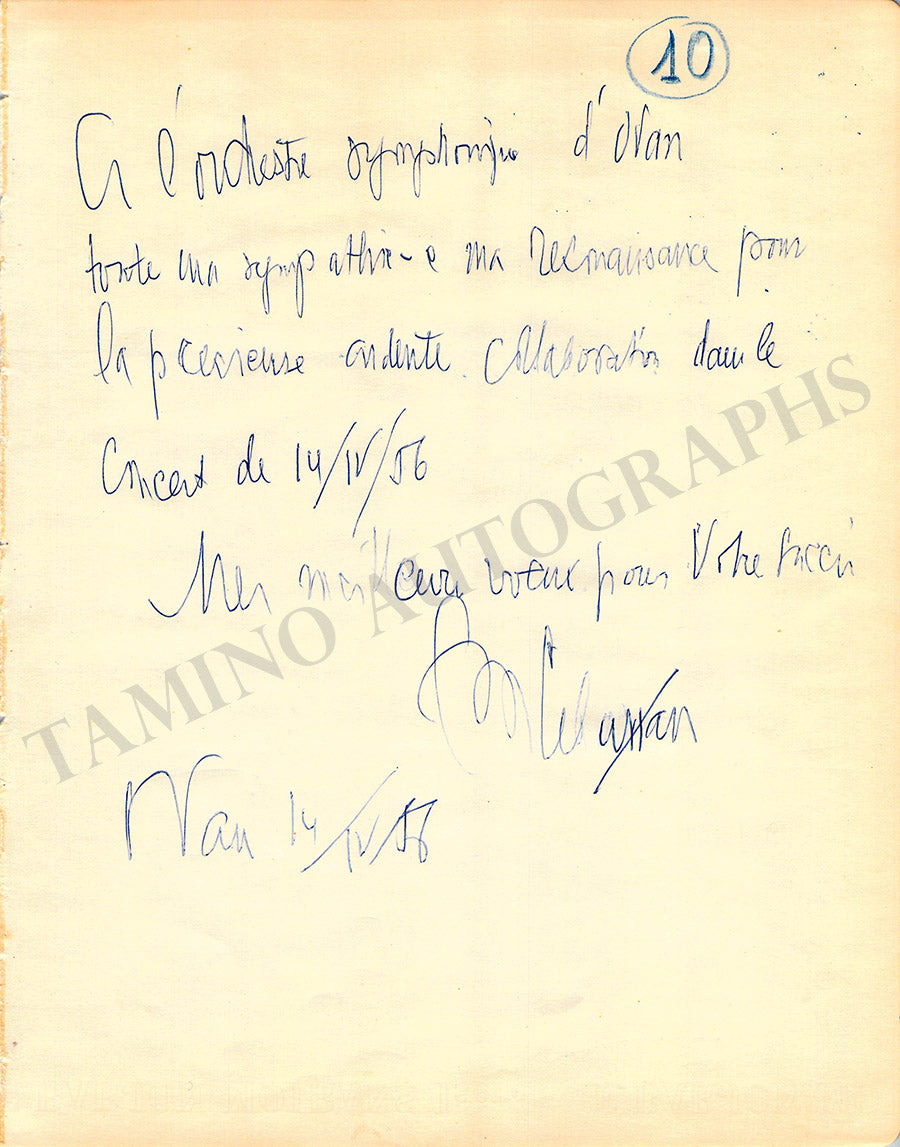 10
A l'orchestre symphonique d'Oran
toute ma sympathie e ma reconnaissance pour
la precieuse ardente collaboration dans le
Concert de 14/IV/56
Mes meilleurs voeux pour Votre succès
Oran 14/IV/56
TAMINO AUTOGRAPHS